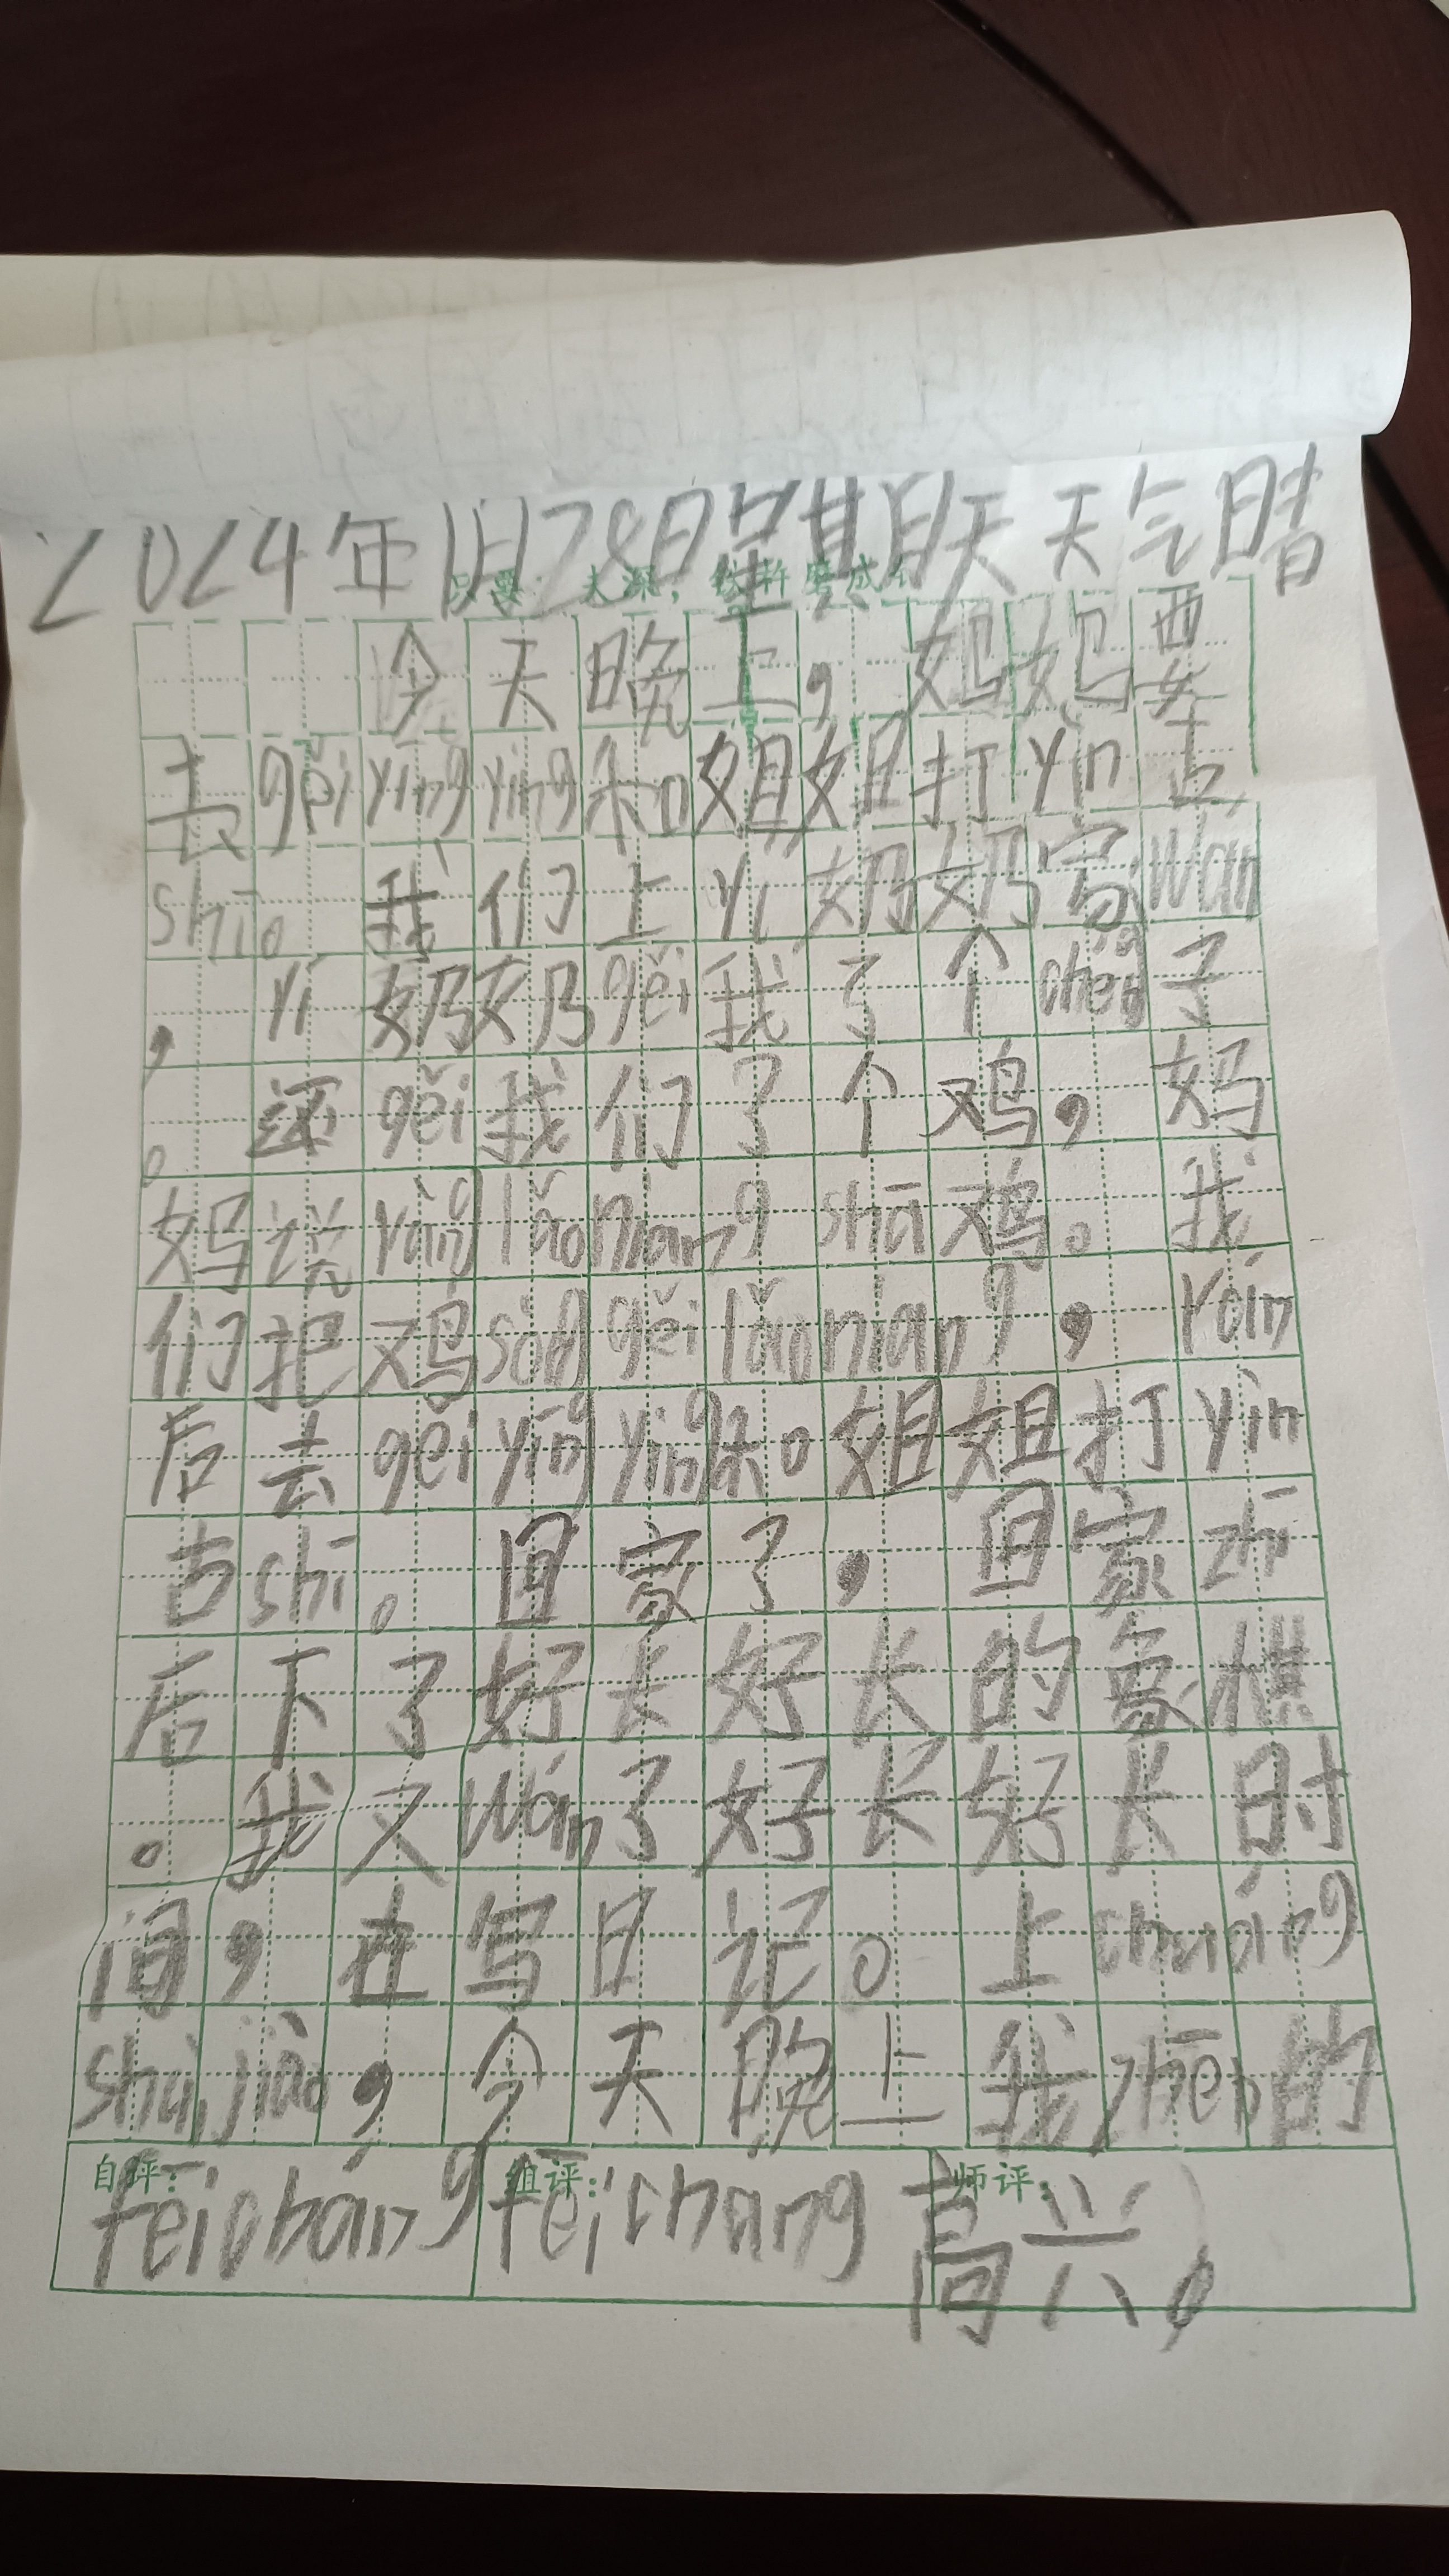 2024年1月28日星期天 天气晴
只要 功夫深，铁杵磨成针
今天晚上，妈妈要
去gěiyīngyīng和姐姐打yìn古
shī。我们上yí奶奶家wán
，yí奶奶gěi我了个chéng子
。还gěi我们了个鸡，妈
妈说ràng lǎoniang shā鸡。我
们把鸡sònggěi lǎoniang，rán
后去gěi yīng yīng和姐姐打yìn
古shī。回家了，回家zhī
后下了好长好长的象棋
。我又wán了好长好长时
间，在写日记。上chuáng
shuìjiào，今天晚上我zhēn的
自评： 组评： 师评：
fēicháng fēicháng 高兴。